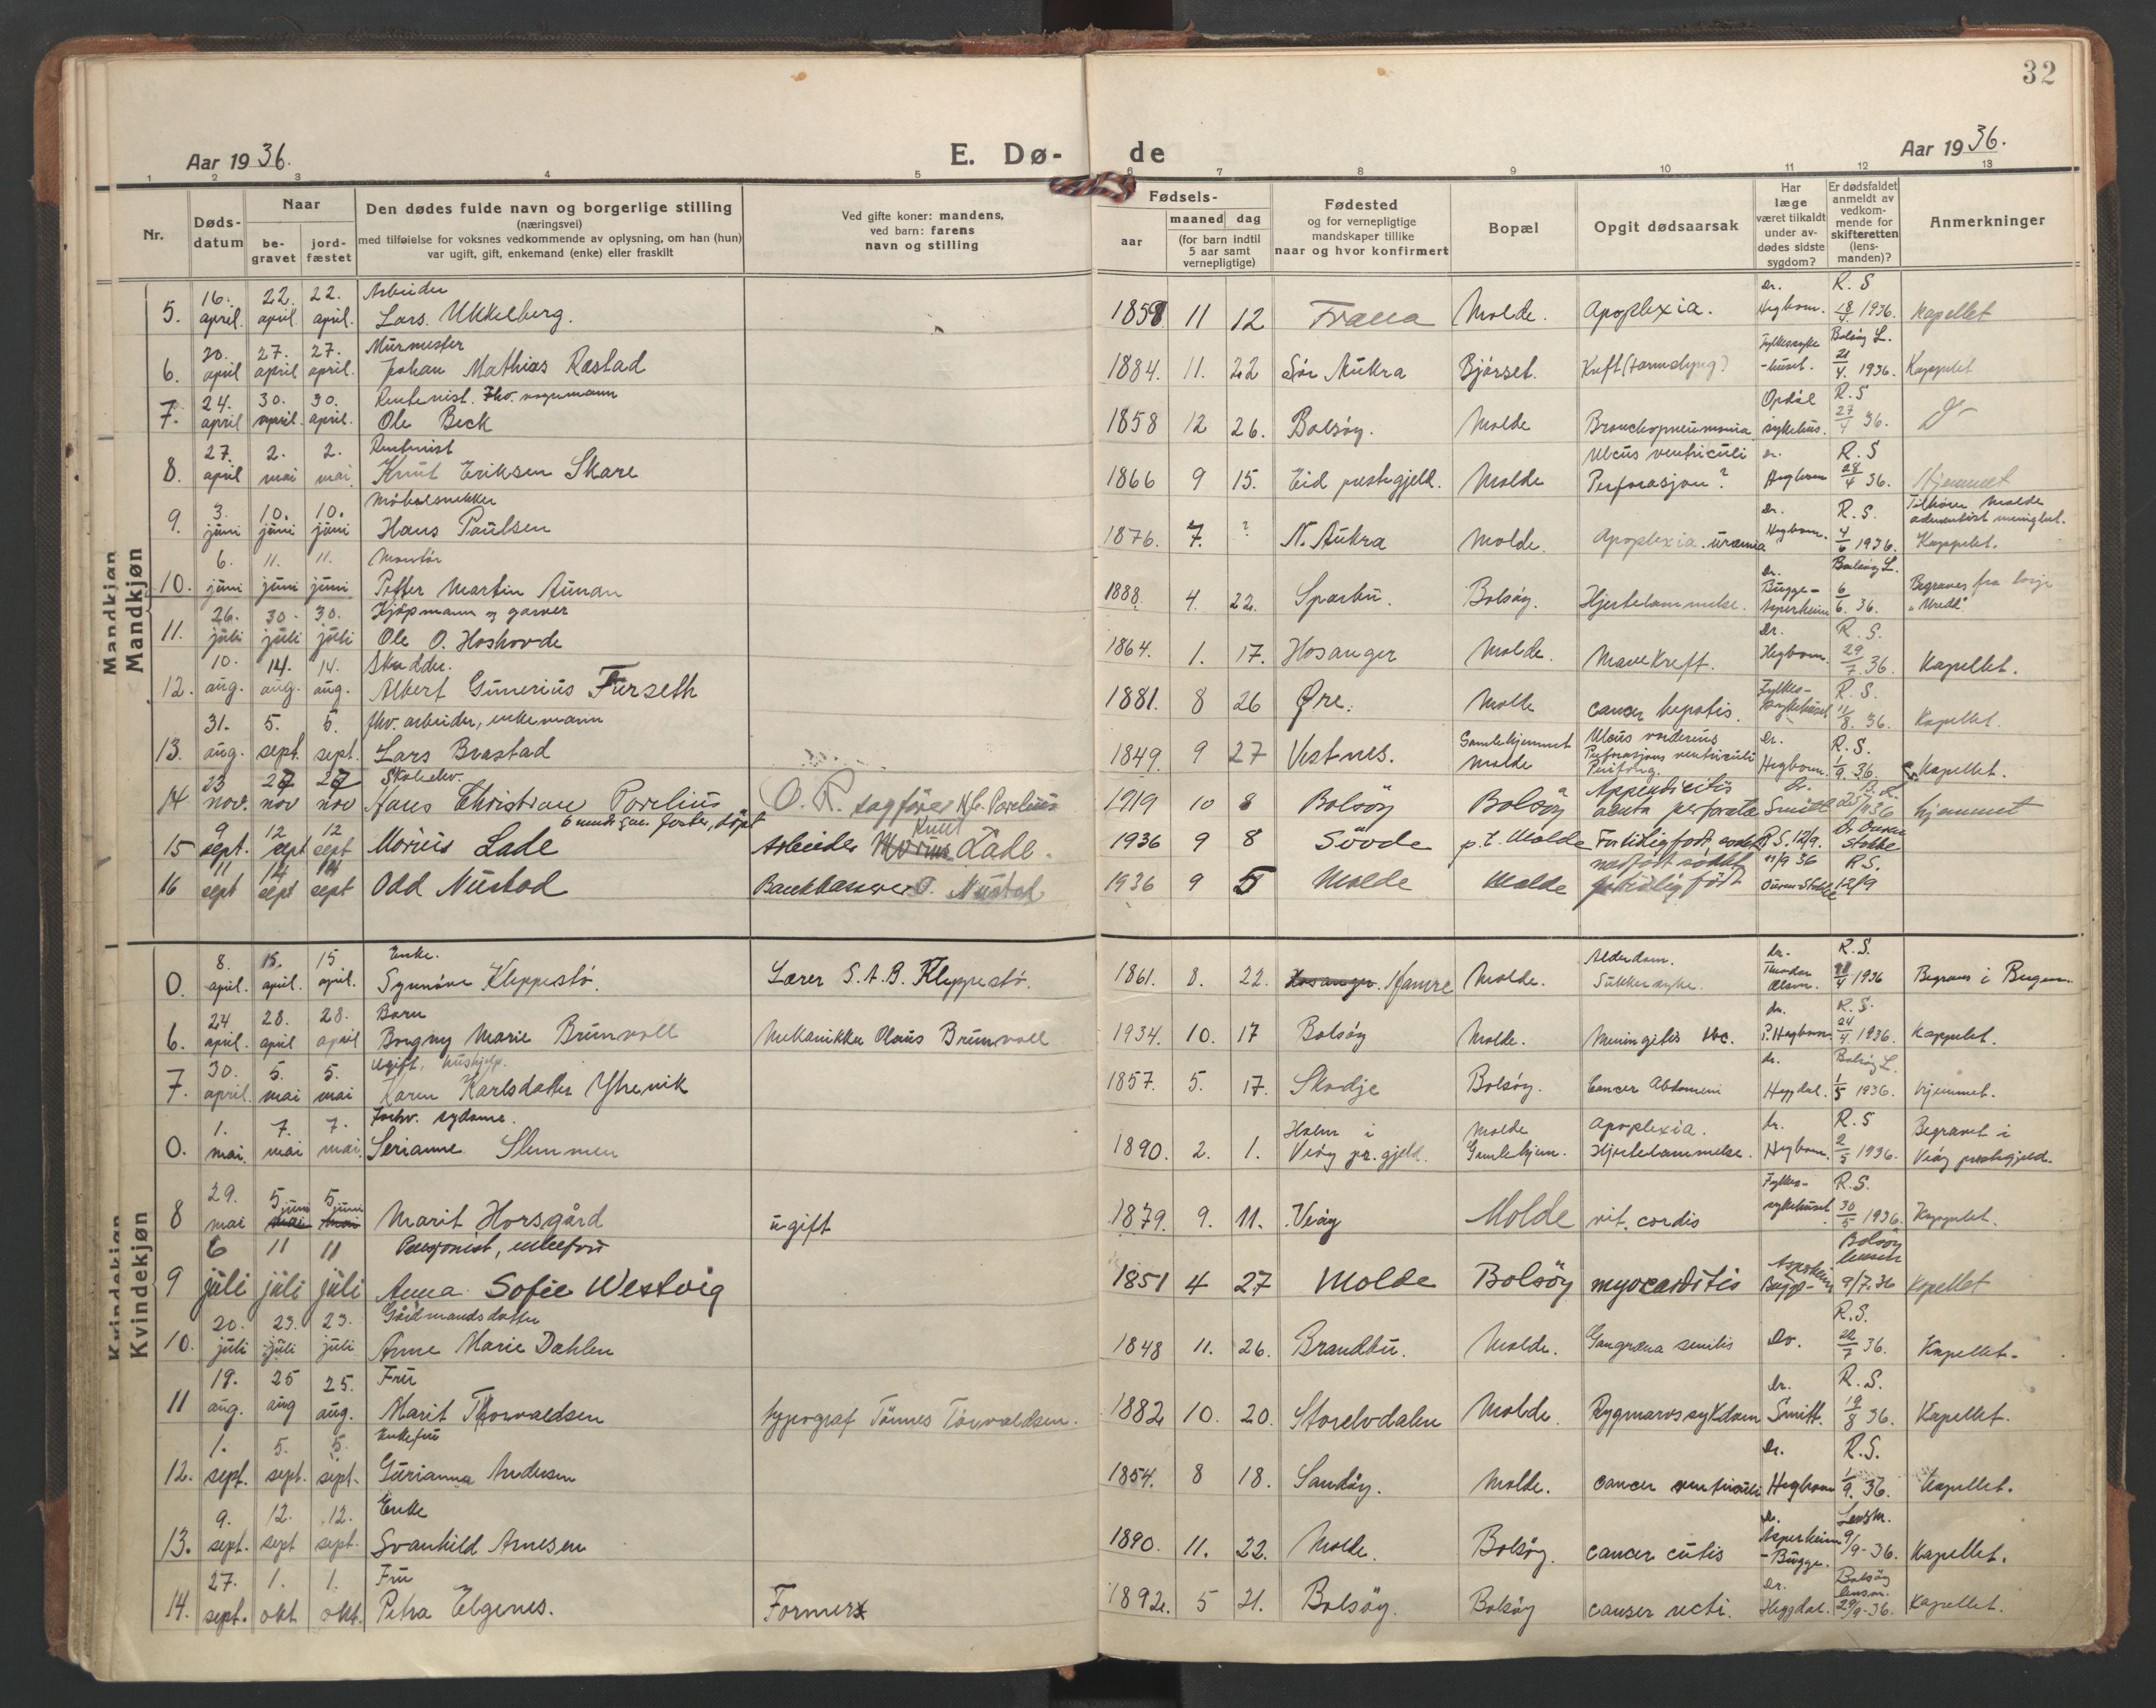 32
Aar 1936.
E. Dø-
de
Aar 1936.
1 2 3 4 5 6 7 8 9 10 11 12 13
Nr.
Døds-
datum
Naar
be-
gravet
jord-
fæstet
Den dødes fulde navn og borgerlige stilling
(næringsvei)
med tilføielse for voksnes vedkommende av oplysning, om han (hun)
var ugift, gift, enkemand (enke) eller fraskilt
Ved gifte koner: mandens,
ved barn: farens
navn og stilling
Fødsels-
aar
maaned dag
(for barn indtil
5 aar samt
vernepligtige)
Fødested
og for vernepligtige
mandskaper tillike
naar og hvor konfirmert
Bopæl
Opgit dødsaarsak
Har
læge
været tilkaldt
under av-
dødes sidste
sygdom?
Er dødsfaldet
anmeldt av
vedkom-
mende for
skifteretten
(lens-
manden)?
Anmerkninger
Mandkjøn
Mandkjøn
16. 22. 22. Arbeider Dr. R. S
5. april. april. april. Lars Ukkelberg. 1858 11 12 Fræna Molde. Apoplexia. Hegbom. 18/4 1936. Kapellet
20. 27. 27. Murmester Fylkessyke Bolsöy L.
6. april april april. Johan Mathias Rastad 1884. 11. 22 Sör Aukra Bjørset. Kreft -huset. 21/4. 1936. Kappelet
24. 30. 30. Rentenist. fhv. vognmann Opdöl R. S
7. april april. april. Ole Beck 1858 12 26. Bolsöy. Molde Bronchopneumonia sykehus. 27/4 36.
27. 2. 2. Rentenist Ulcus ventriculi dr. R. S
8. april mai mai Knut Eriksen Skare 1866 9 15. Eid prestegjeld. Molde Perforasjon? Hegbom 28/4 36. Hjemmet
3. 10. 10. Möbelsnekker dr. R. S. Tilhörer Molde adventist menighet.
9. juni juni juni Hans Paulsen 1876. 7. ? N. Aukra Molde. Apoplexia. uræmia Hegbom. 4/6 1936. Kappelet.
6. 11. 11. Montör Dr. Bolsöy L.
10. juni juni juni Petter Martin Aunan 1888. 4. 22. Sparbu. Bolsöy. Hjertelammelse. Bugge-Asperheim 6/6. 36. Begraves fra
26. 30. 30. Kjöpmann og garver Dr. R. S.
11. juli juli juli Ole O. Hoshovde 1864. 1. 17. Hosanger Molde. Mavekreft. Hegbom. 29/7 36. Kapellet.
10. 14. 14. Skredder. Fylkes- R. S.
12. aug. aug. aug. Albert Gunerius Furseth 1881. 8 26 Øre. Molde cancer hepatis. sykehuset 11/8. 36. Kapellet.
31. 5. 5. fhv. arbeider, enkemann Gamlehjemmet Ulcus dr. R. S.
13. aug. sept. sept. Lars Brastad 1849. 9 27 Vestnes. Molde Perforasjons ventriculi Hegbom. 1/9. 36. Kapellet.
23 27 27 Skoleelev. Appendicitis Dr.
14 nov. nov nov Hans Christian Porelius O. R. sagförer H. C. Porelius 1919 10 8 Bolsöy Bolsöy acuta perforata Smith 25/11 36 hjemmet
9 12 12 6 mndr gml. foster, döpt Knut
15 sept. sept sept Morius Lade Arbeider Morius Lade. 1936 9 8 Sövde p.t. Molde For tidlig født, R. S. 12/9. Dr Ouren Stokke
11 14 14 11/9 36 R.S.
16 sept sept sept Odd Nustad Bankkasserer O. Nustad 1936 9 5 Molde Molde for tidlig født Ouren Stokke 12/9
Kvindekjøn
Kvindekjøn
8. 15. 15 Enke. Alderdom. dr. R. S.
0. april. april. april. Synnöve Kleppestö. Lærer S. A. B. Kleppestö. 1861. 8. 22. Hosanger. Hamre Molde. Sukkersyke. Theodor Olsen. /4 1936 Begraves i Bergen.
24 28. 28. Barn dr. R. S.
6. april. april april Borgny Marie Brunvoll Mekanikker Olaus Brunvoll 1934. 10. 17 Bolsöy Molde. Meningitis tbc. P. Hegbom. 24/4. 1936. Kappelet.
30. 5. 5. Ugift, hushjelp. dr. Bolsöy L.
7. april. mai mai Karen Karlsdatter Ytrevik 1857. 5. 17. Skodje Bolsöy. Cancer Abdomeni Heggdal. 1/5 1936. hjemmet.
1. 7. 7. Forhv. sydame. Holm i Molde Apoplexia. dr. R. S Begravet i
0. mai. mai mai. Serianne Slemmen 1890. 2. 1. Veöy pr. gjeld. Gamlehjem. Hjertelammelse. Hegbom. 2/5 1936. Veöy prestegjeld.
29. 5 juni 5 juni Fylkes- R. S.
8 mai mai mai Marit Horsgård ugift 1879. 9. 11. Veöy Molde vit. cordis sykehuset 30/5 1936. Kappelet.
6 11 11 Pensjonist, enkefru Bolsöy lensm
9 juli juli juli Anna Sofie Westvig 1851 4 27 Molde Bolsöy myocarditis Asperheim Bugge 9/7.36 Kapellet
20. 23. 23. Gårdmandsdatter R. S.
10. juli juli juli Anne Marie Dahlen 1848 11. 26. Brandbu. Molde. Gangræna senilis Dr. 22/7 36. Kapellet.
19. 25 25. Fru dr. R. S.
11 aug. aug aug. Marit Thorvaldsen typograf Tönnes Torvaldsen. 1882 10. 20. Storelvdalen Molde. Rygmarvssykdom Smith. 19/8 36. Kapellet.
1. 5. 5. Enkefru Dr. R. S.
12. sept. sept. sept. Gurianna Andersen 1854. 8 18. Sandöy. Molde. cancer ventriculi Hegbom 1/9. 36. Kapellet.
9. 12. 12. Enke dr. Lensm.
13. sept. sept sept. Svanhild Arnesen 1890. 11. 22. Molde. Bolsöy. cancer cutis Asperheim-Bugge. 9/9-36. Kapellet.
27. 1. 1. Fru Dr. Bolsöy lensm.
14. sept. okt okt. Petra Elgenes. Former 1892. 5 21. Bolsöy. Bolsöy canser recti. Heggdal. 29/9-36. Kapellet.